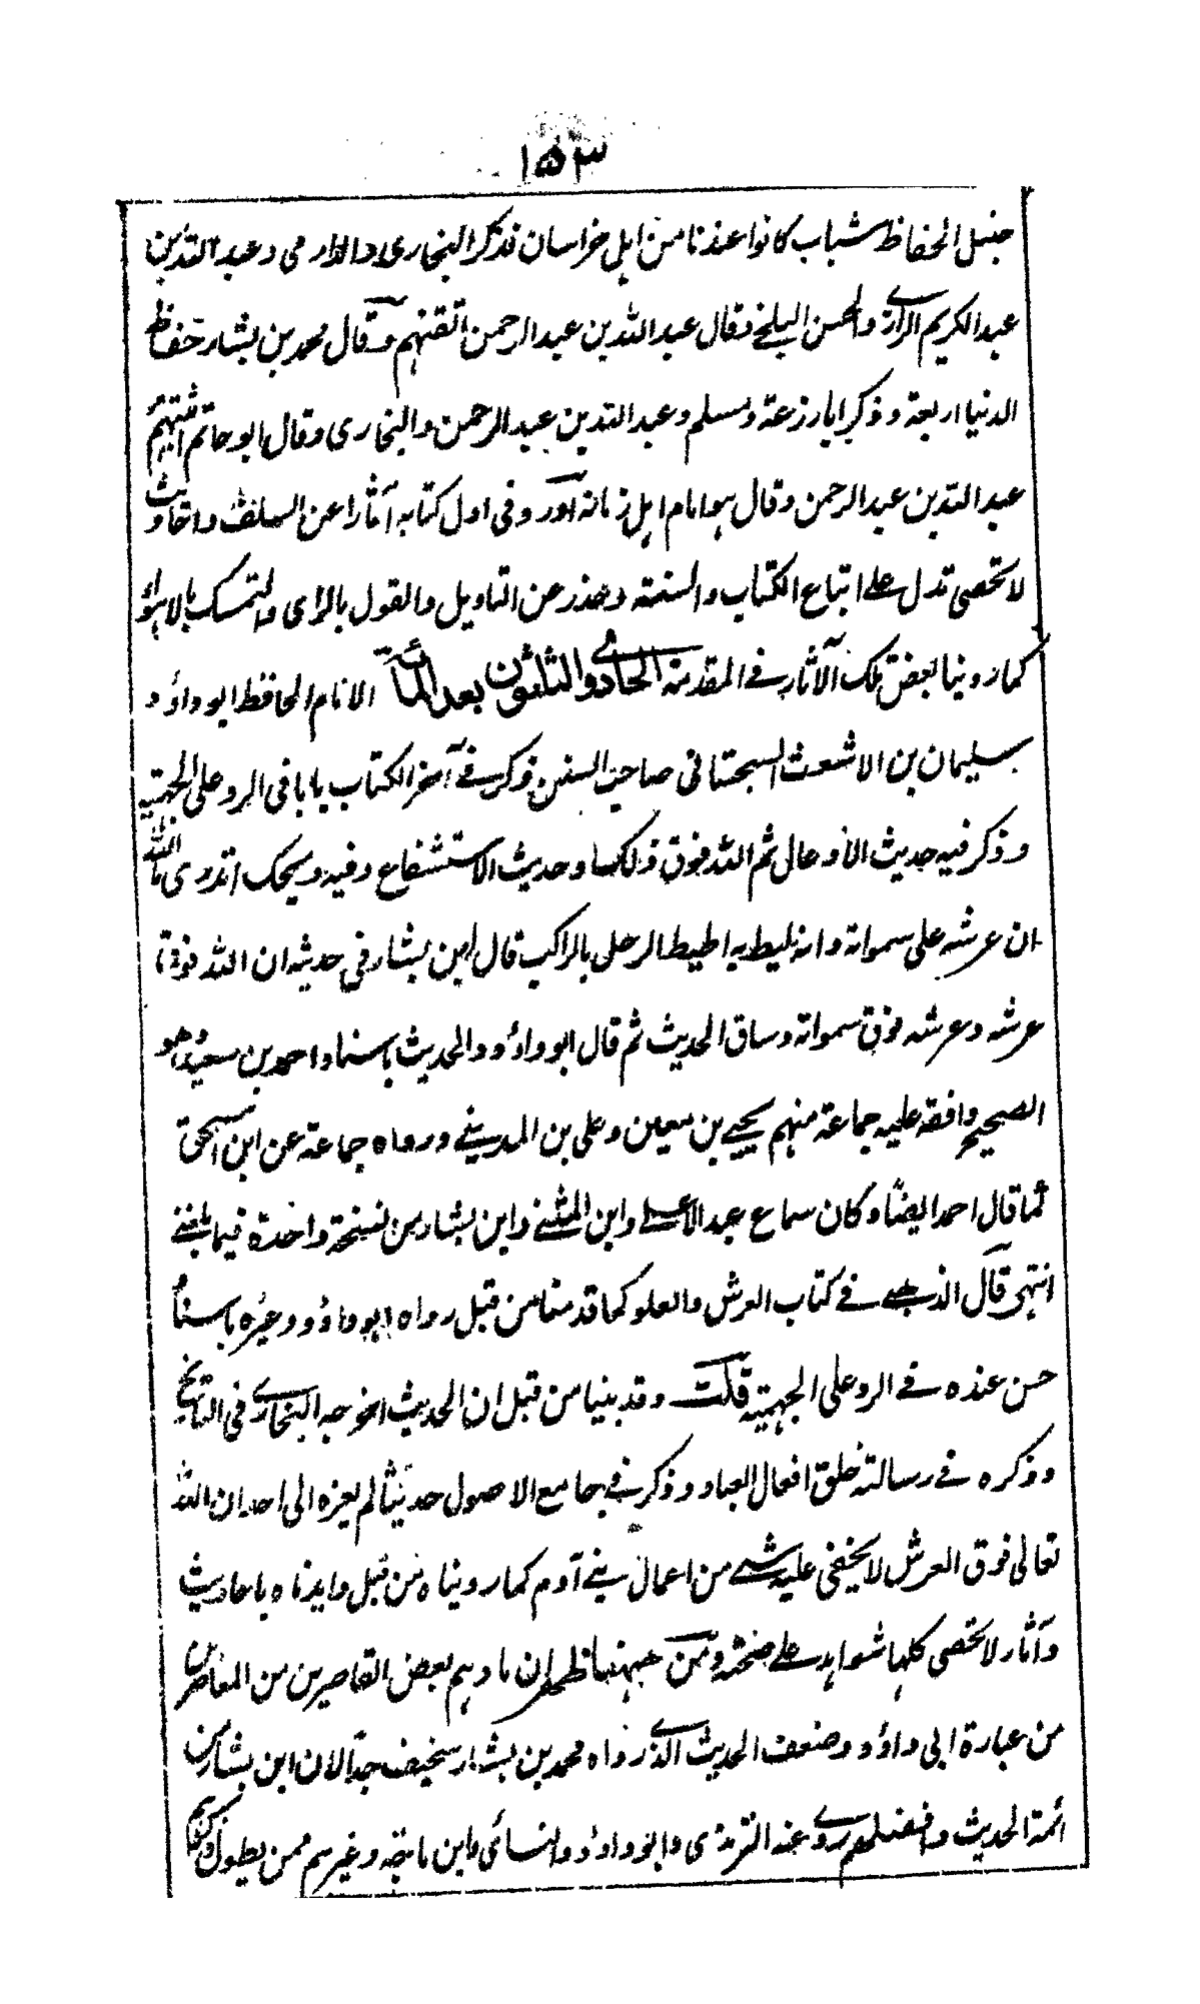 ١٥٣
حنبل الحفاظ شباب كانوا عندنا من اهل خراسان فذكر البخاري والدارمي وعبد الله بن
عبد الكريم الرازي والحسن البلخي وقال عبد الله بن عبد الرحمن اتقنهم وقال محمد بن بشار حفاظ
الدنيا اربعة وذكر ابا زرعة ومسلم وعبد الله بن عبد الرحمن والبخاري وقال ابو حاتم اثبتهم
عبد الله بن عبد الرحمن وقال هو امام اهل زمانه اورد في اول كتابه آثارا عن السلف واحاديث
لا تحصى تدل على اتباع الكتاب والسنة وحذر عن التاويل والقول بالراى والتمسك بالاهواء
كما روينا بعض تلك الآثار في المقدمة الحادي والثلثون بعد المائة الامام الحافظ ابو داؤد
سليمان بن الاشعث السجستاني صاحب السنن ذكر في آخر الكتاب بابا في الرد على الجهمية
وذكر فيه حديث الاوعال ثم الله فوق ذلك وحديث الاستشفاع وفيه ويحك اتدرى ما الله
ان عرشه على سمواته وانه ليط به اطيط الرحل بالراكب قال ابن بشار في حديثه ان الله فوق
عرشه وعرشه فوق سمواته وساق الحديث ثم قال ابو داؤد والحديث باسناد احمد بن سعيد هو
الصحيح وافقه عليه جماعة منهم يحيى بن معين وعلي بن المديني ورواه جماعة عن ابن اسحق
كما قال احمد ايضا وكان سماع عبد الاعلى وابن المثنى وابن بشار من نسخة واحدة فيما بلغني
انتهى قال الذهبي في كتاب العرش والعلو كما قدمنا من قبل رواه ابو داؤد وغيره باسناد
حسن عنده في الرد على الجهمية قلت وقد بينا من قبل ان الحديث اخرجه البخاري في التاريخ
وذكره في رسالة خلق افعال العباد وذكر في جامع الاصول حديثا لم يعزه الى احد ان الله
تعالى فوق العرش لا يخفى عليه شئ من اعمال بني آدم كما روينا من قبل وايدناه باحاديث
وآثار لا تحصى كلها شواهد على صحته ومن ههنا ظهر ان ما وهم بعض القاصرين من المعاصرين
من عبارة ابي داؤد وضعف الحديث الذي رواه محمد بن بشار سخيف جدا لان ابن بشار من
ائمة الحديث وافضلهم روى عنه الترمذى وابو داؤد والنسائى وابن ماجة وغيرهم ممن يطول